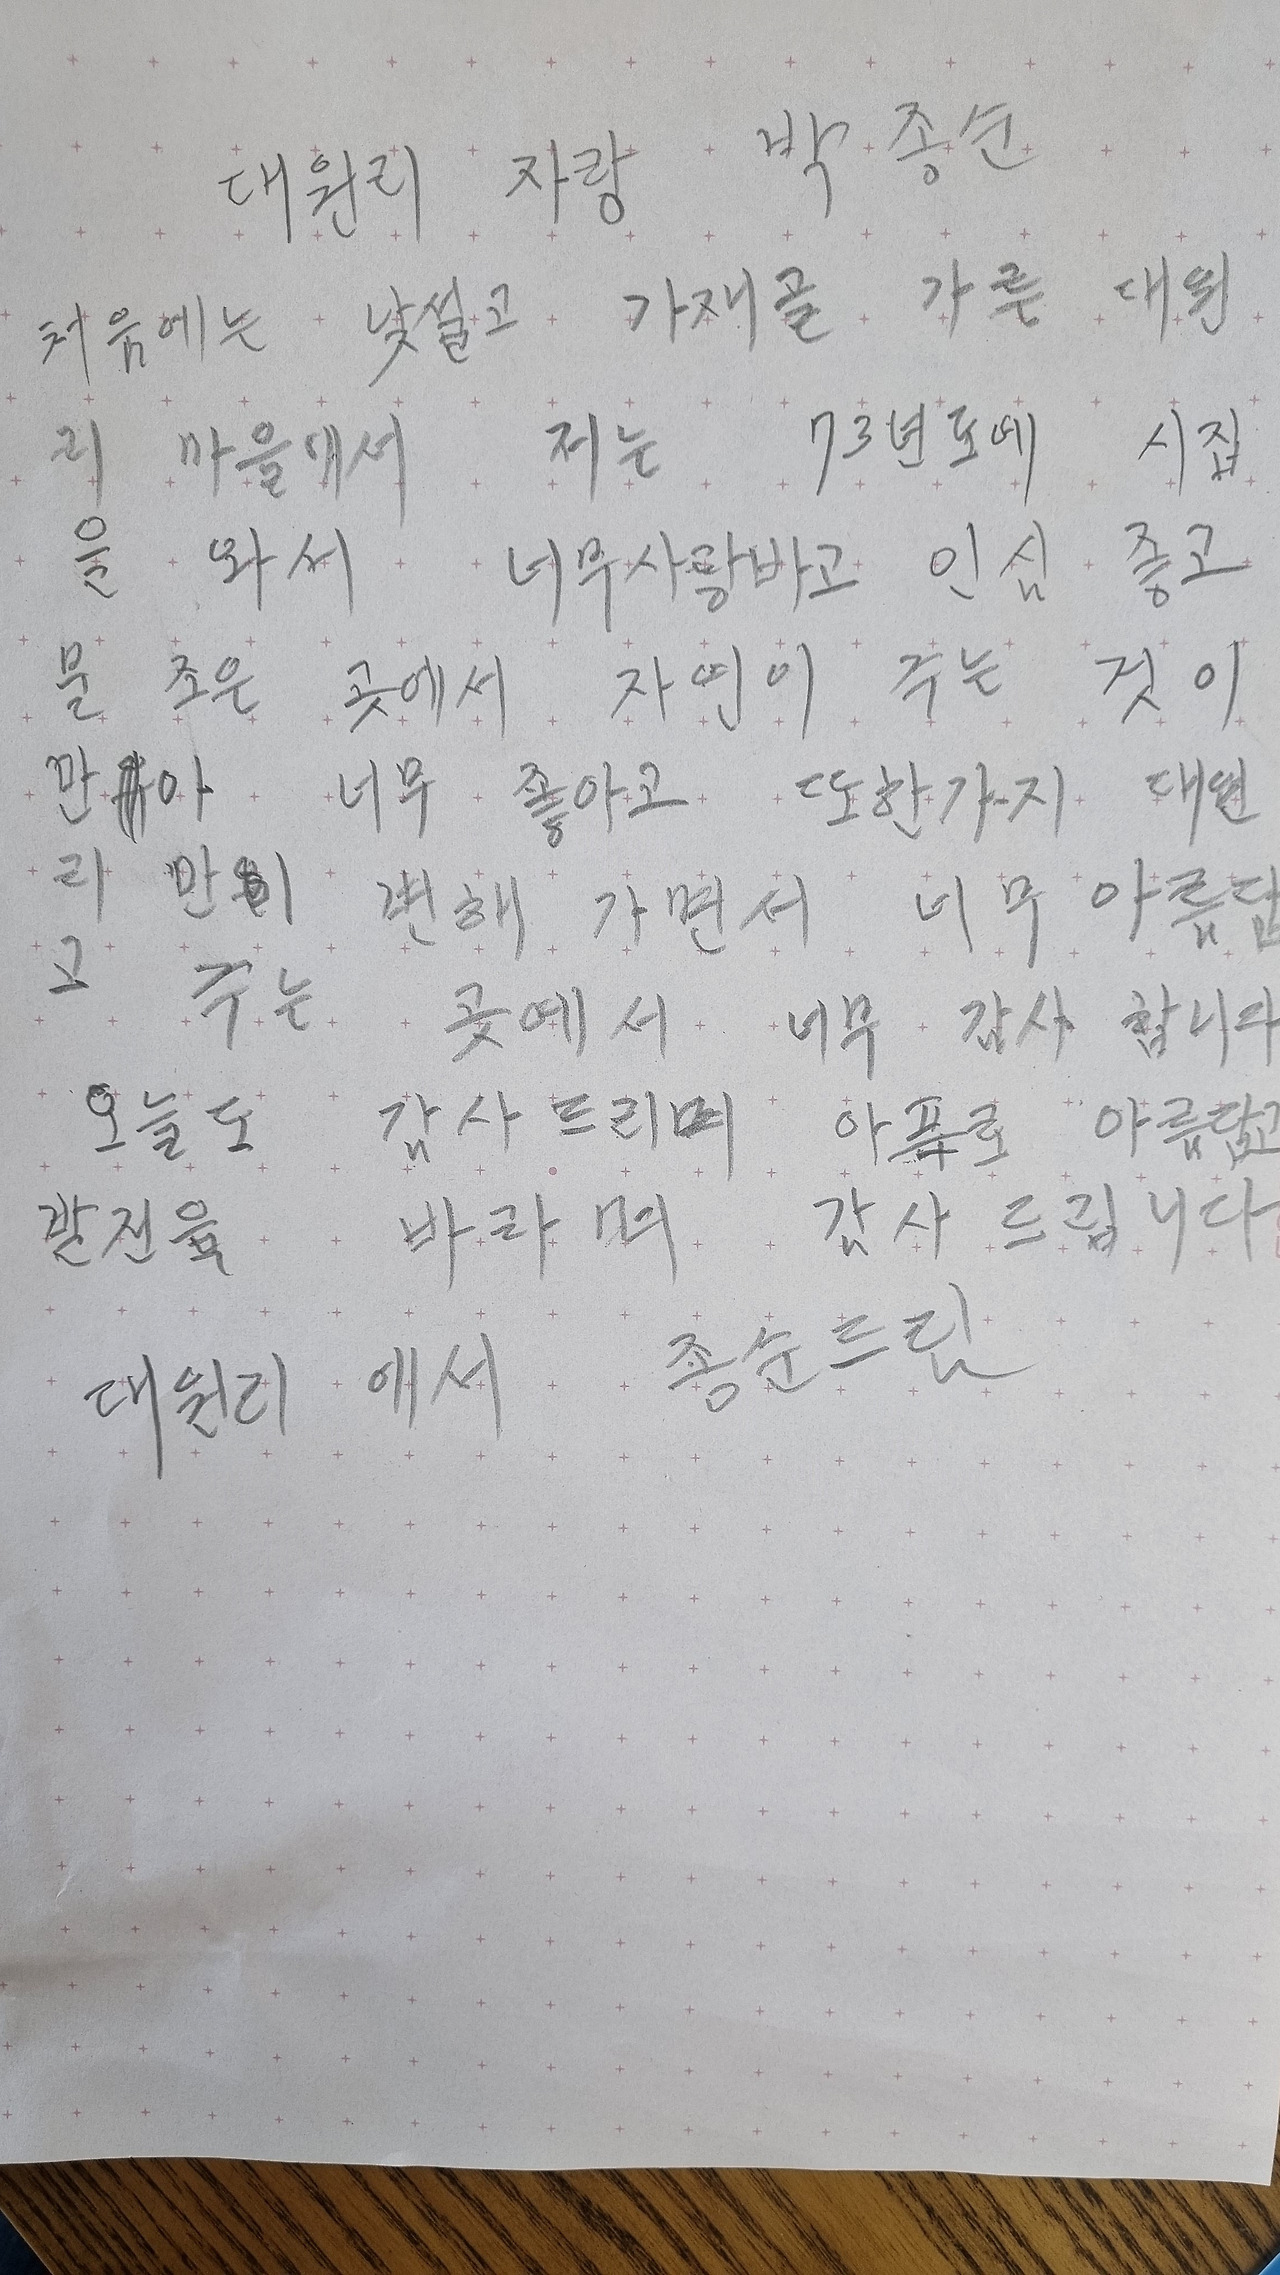 대원리 자랑 박종순
처음에는 낯설고 가재골 가른 대원
리 마을에서 저는 73년도에 시집
을 와서 너무사랑바고 인심 좋고
물 조은 곳에서 자연이 주는 것이
만아 너무 좋아고 또한가지 대원
리 만이 변해 가면서 너무 아름답
고 주는 곳에서 너무 감사 합니다
오늘도 감사드리며 아프로 아름답고
발전을 바라며 감사드립니다
대원리 에서 종순드림